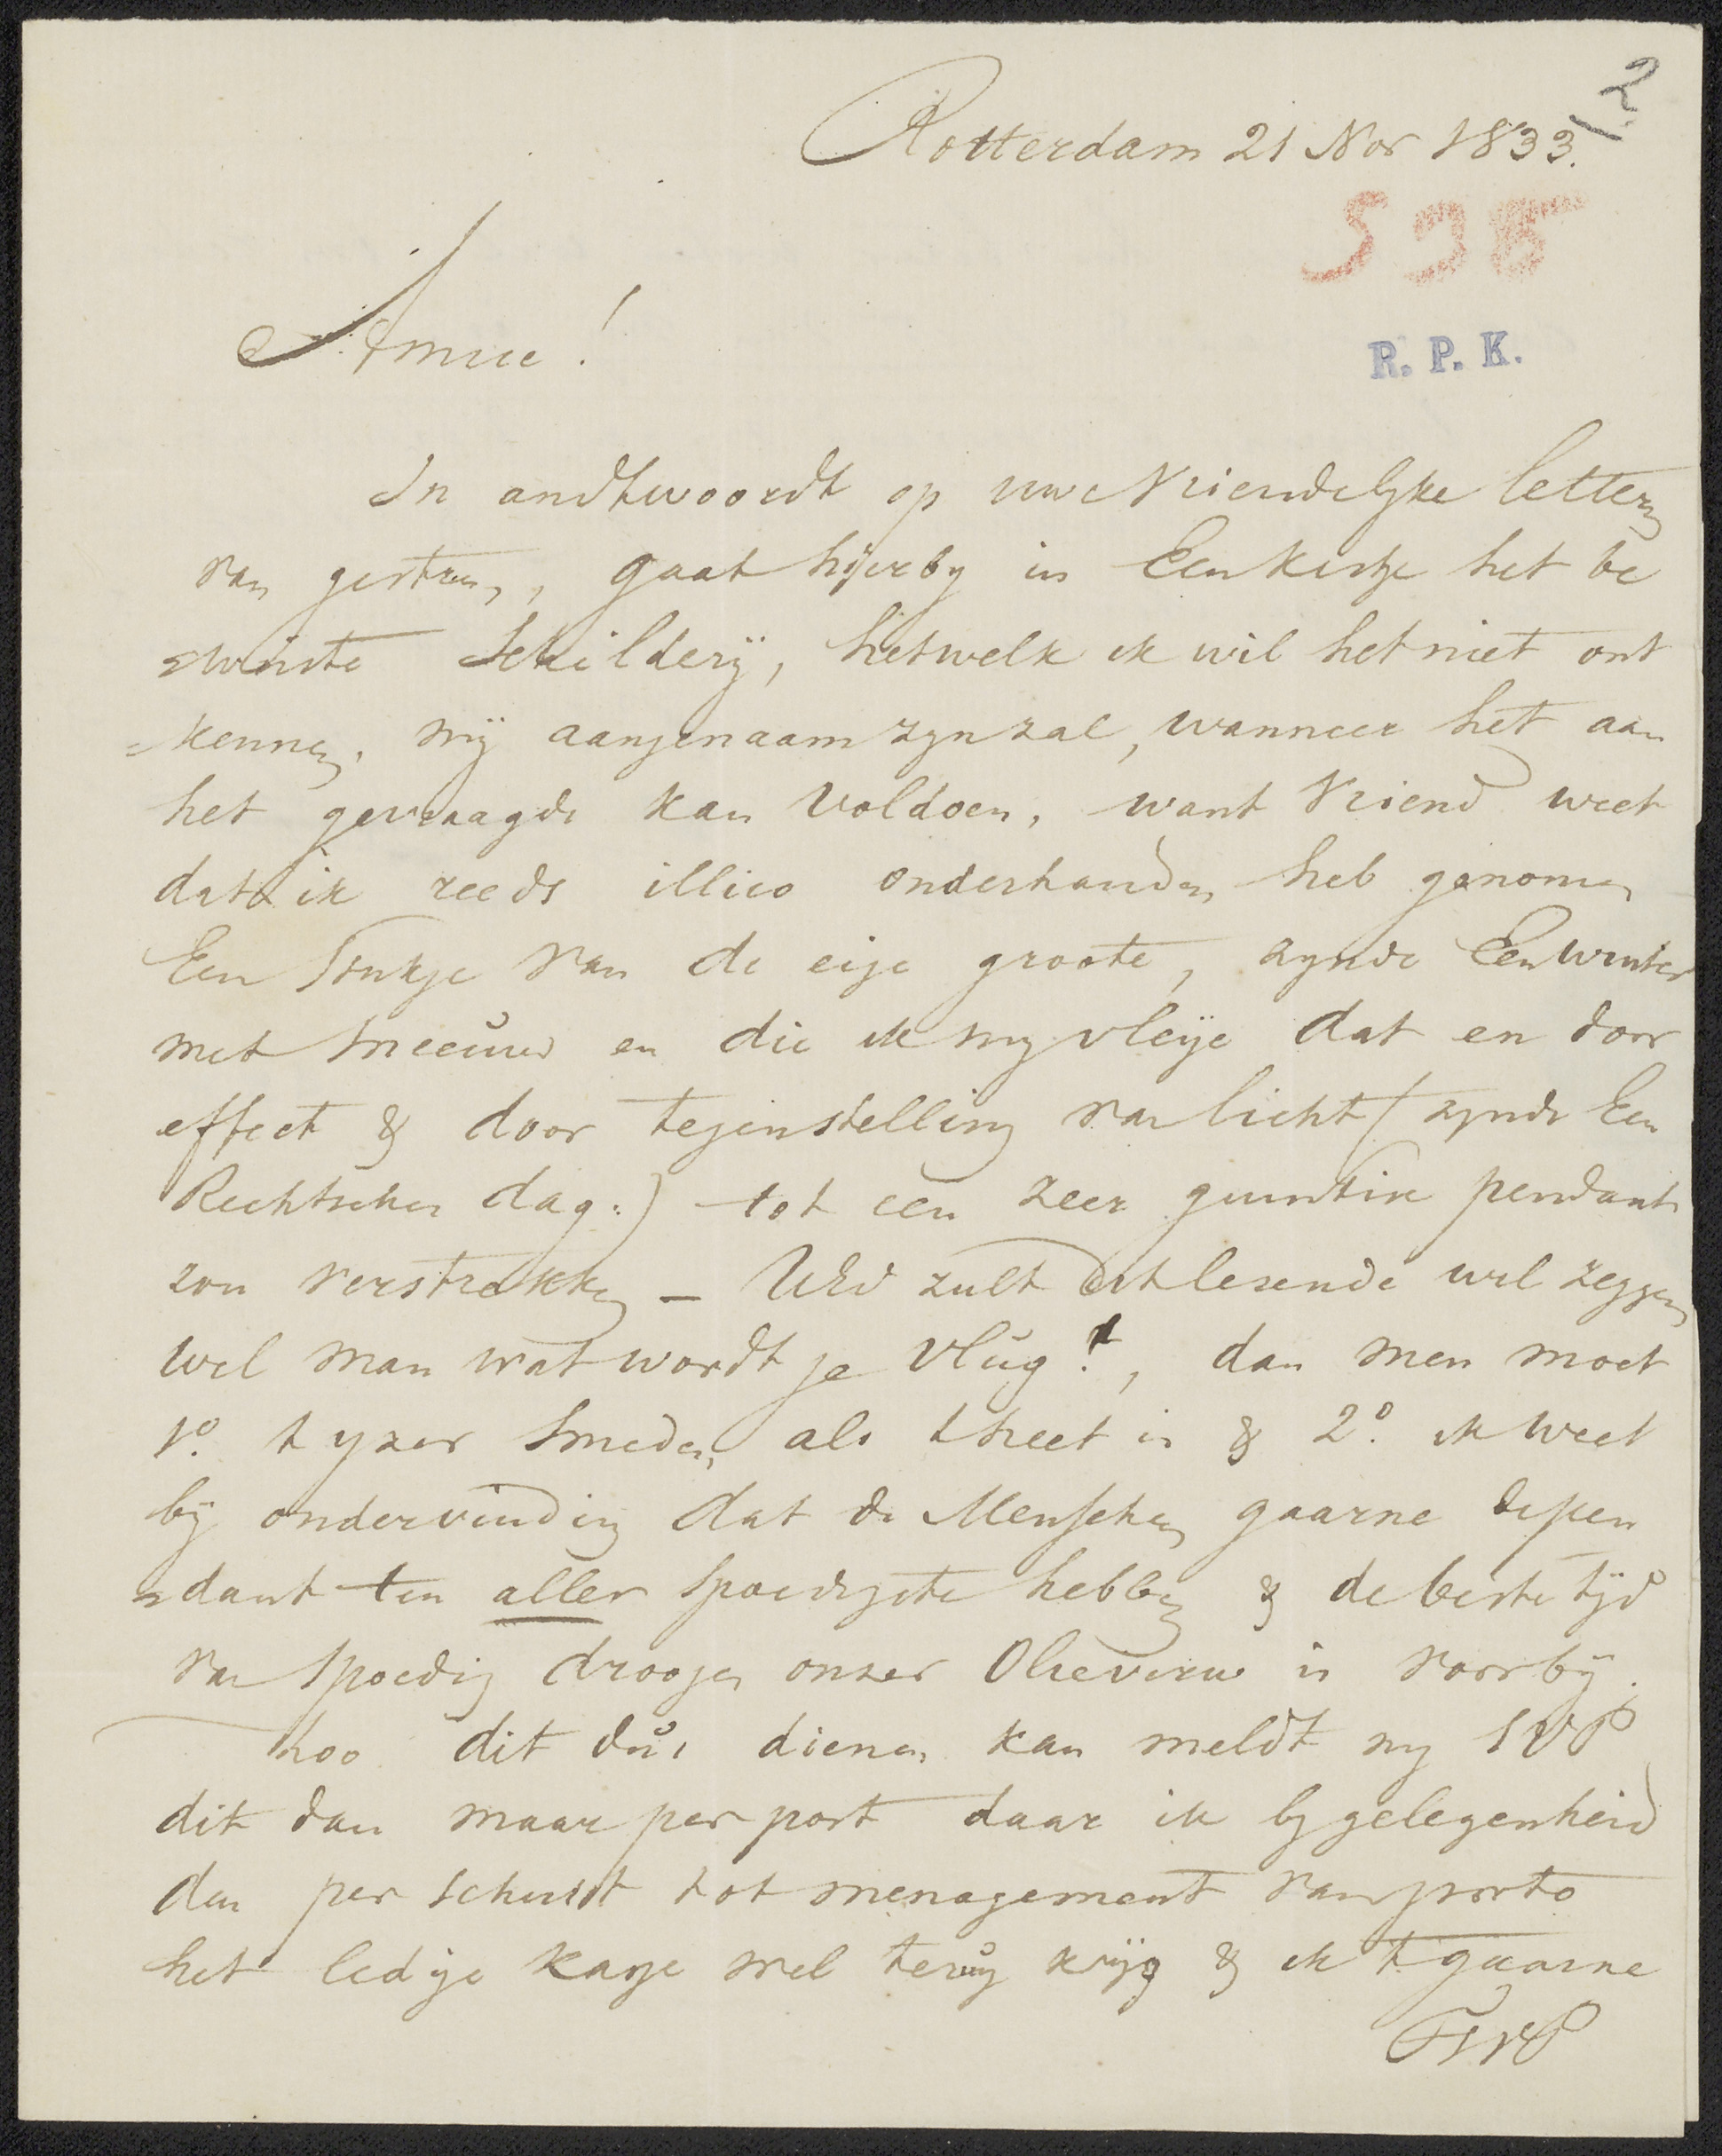 2
Rotterdam 21 Nov 1833.
R. P. K.
Amice!
In andtwoordt op uwe vriendelyke letteren
van gisteren, gaat hierby in Een kistje het be
=wuste Schildery, hetwelk ik wil het niet ont
=kennen, mij aangenaam zyn zal, wanneer het aan
het gevraagde kan voldoen, want vriend weet
dat ik reeds illico onderhanden heb genomen
Een Stukje van de eige groote, zynde Een winter
met sneeuw en die ik my vleije dat en door
effect & door tegenstelling van licht (zynde Een
dag.) tot een zeer gunstig pendant
zou verstrekken — UEd zult dit lezende wel zeggen
wel man wat wordt je vlug!, dan men moet
1o. t yzer Smeden als t heet is & 2o. ik weet
bij ondervinding dat de Menschen gaarne de pen
=dant ten aller spoedigste hebben & de beste tijd
van spoedig droogen onzer Olieverw is voorbij.
zoo dit dus dienen kan meldt my SVP
dit dan maar per post daar ik by gelegenheid
dan per schuit tot menagement van porto
het ledige kasje wel terug krijg & ik t gaarne
TSVP